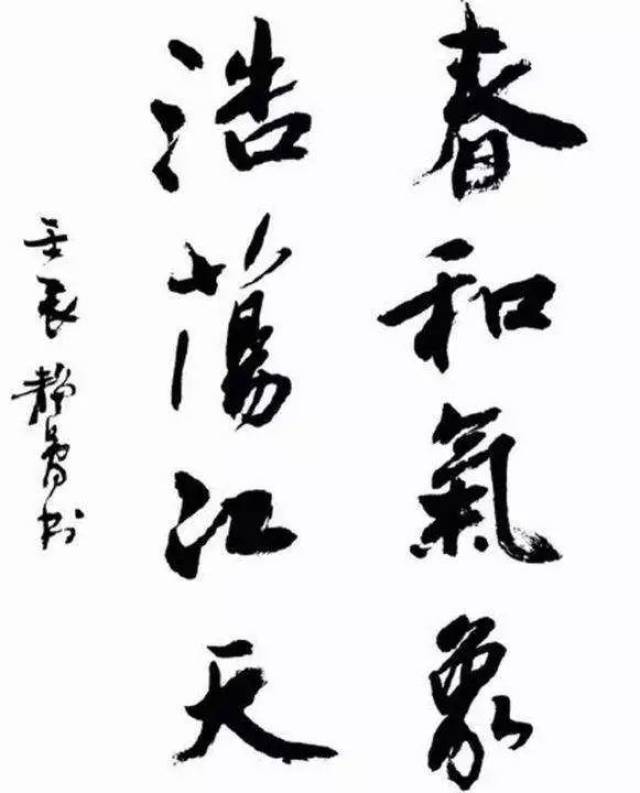 春和氣象
浩蕩江天
壬辰静書